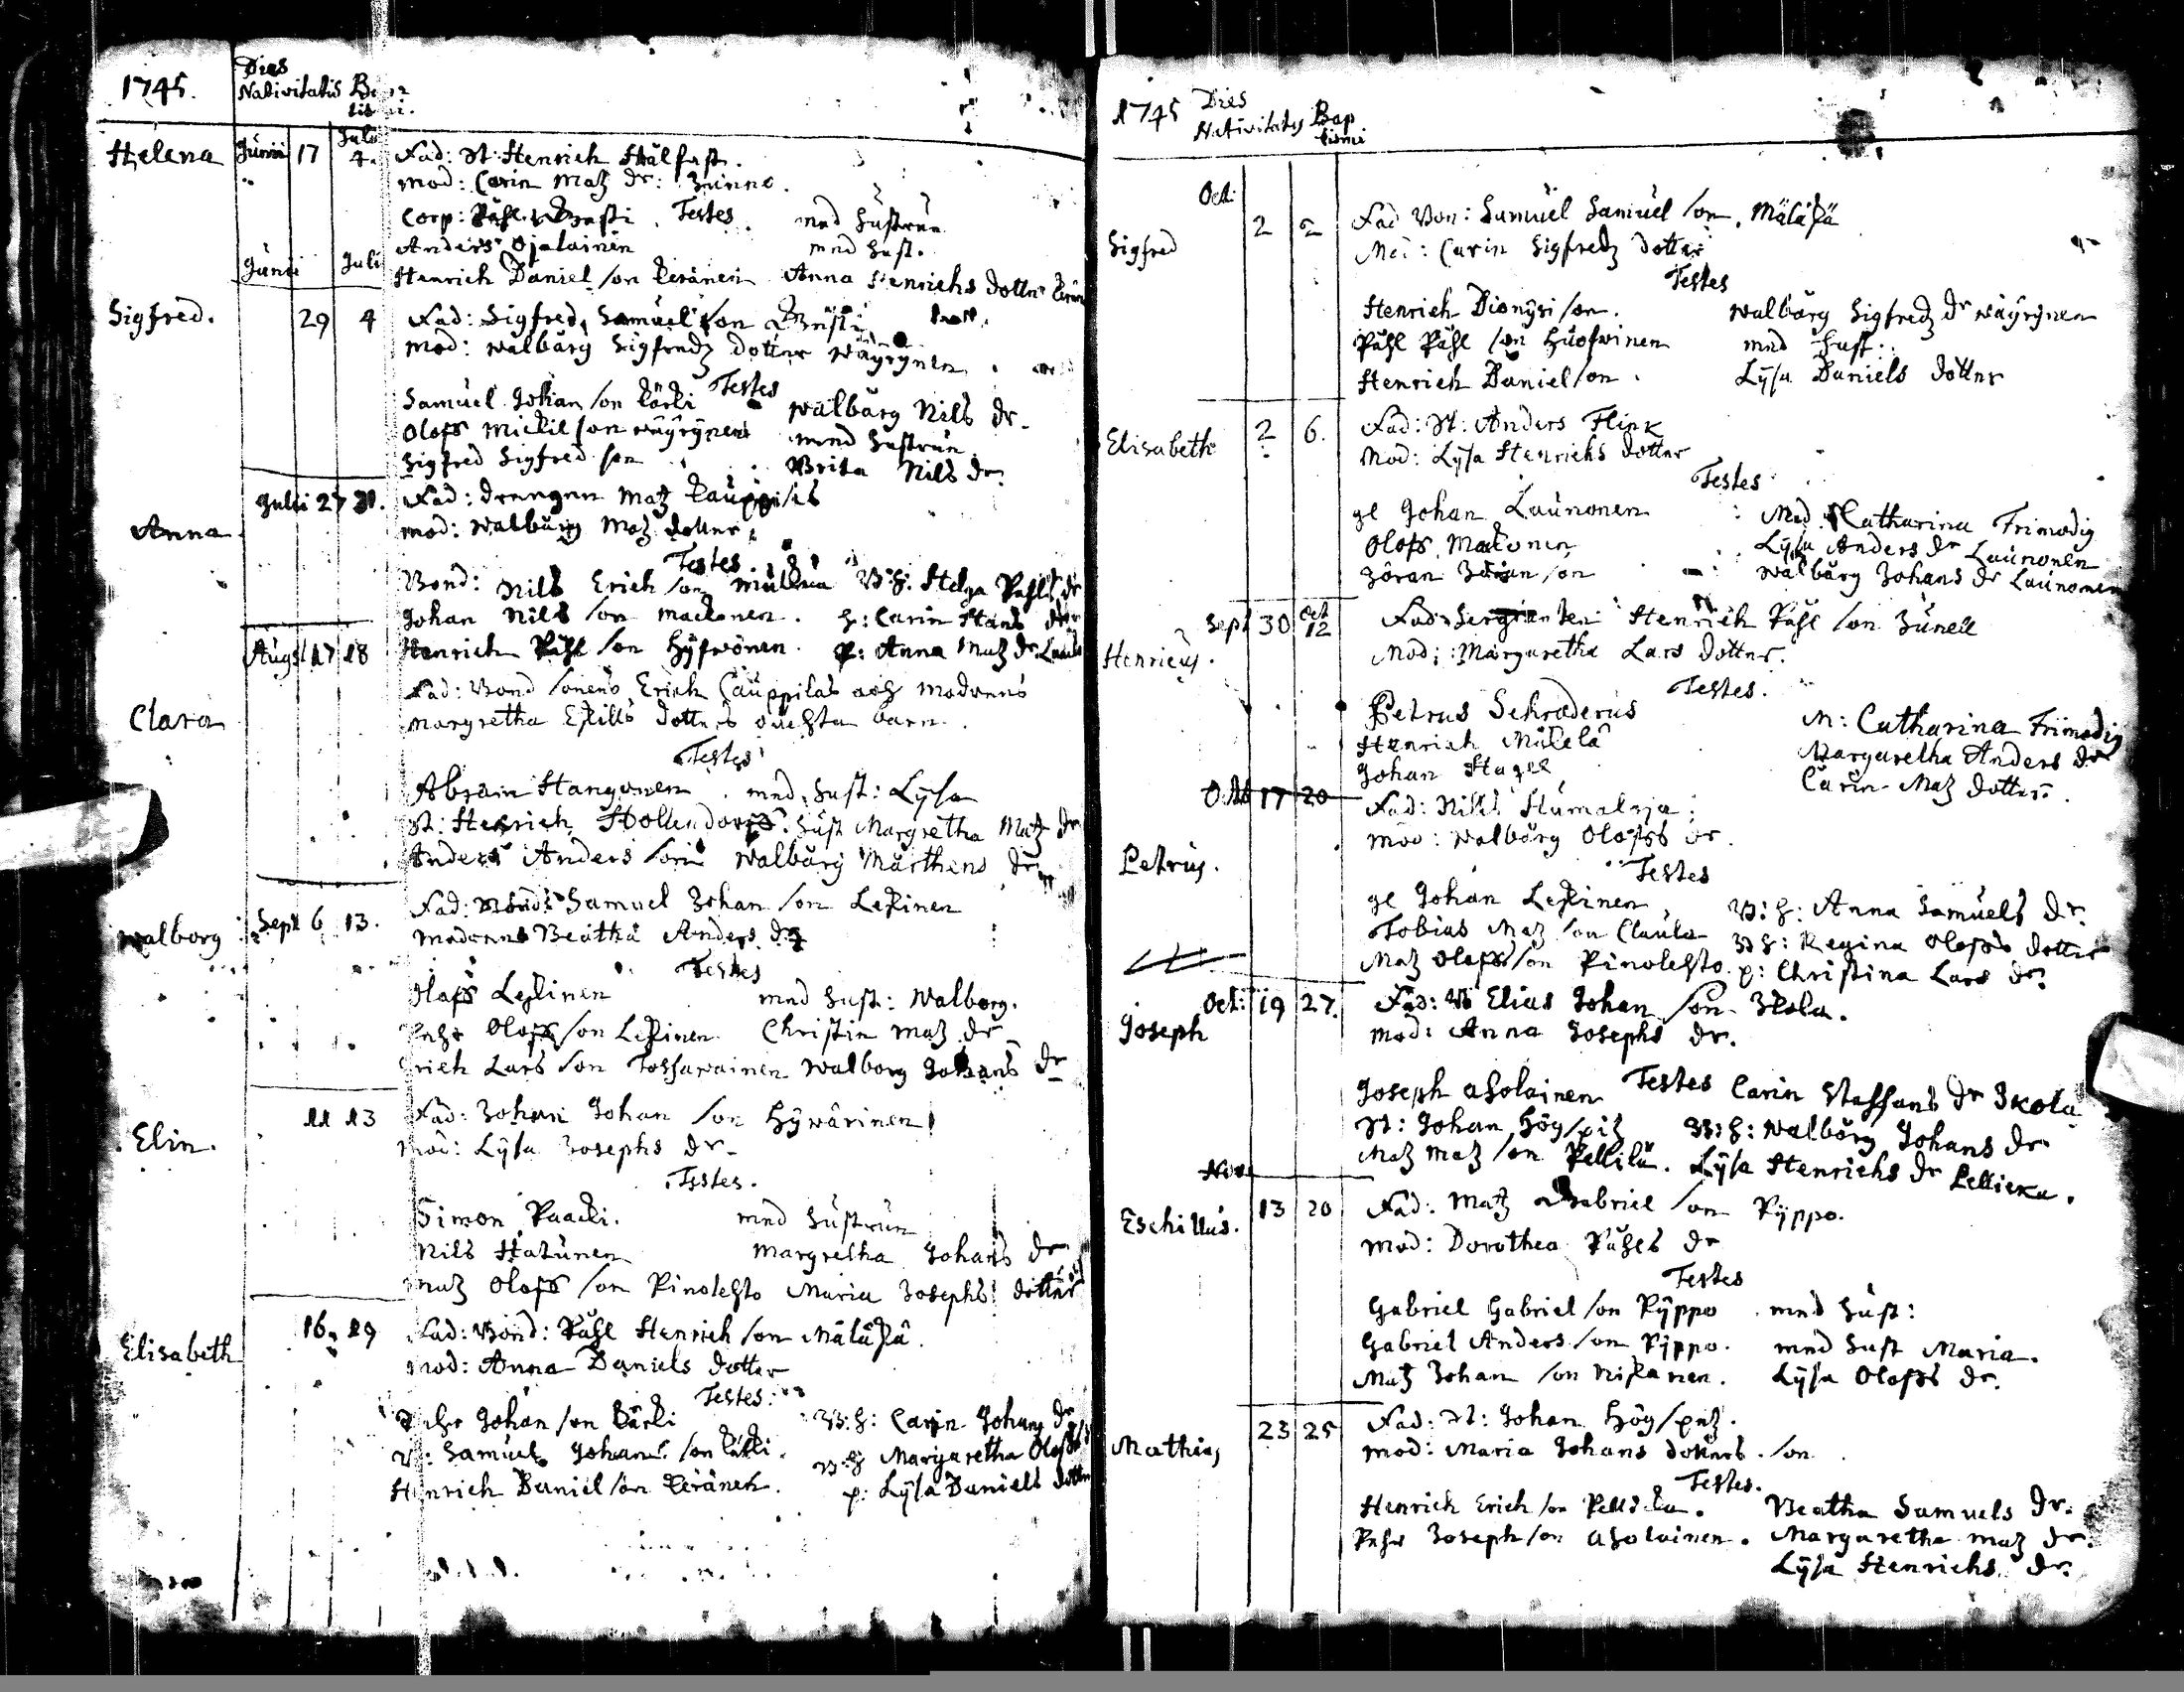 1745.
Dies
Nativitatis
Helena Junii 17 Julii 4. Fad: St: Henrich Hälfast.
mod: Carin Matz dr:
Corp: Påhl Testes. med Hustrun
Anders Ojalainen med Hust.
Junii Juli
Henrich Daniel son Keränen Anna Henrichs dotter
Sigfred. 29 4 Fad: Sigfred Samuel son
mod: walbårg Sigfredz dotter wäyrynen
Testes
Samuel Johan son Kärki walbårg Nils dr.
Olofs Mickil son wäyrynen med Hustrun
Sigfred Sigfred son Brita Nils dr.
Anna Julii 27 31. Fad: drengen Matz Kauppi
mod: walbårg Matz dotter
Testes
Bond: Nils Erich son B:H: Helga Påhls dr
Johan Nils son Mackonen. H: Carin Hans
Henrich Påhl son Hyfwönen. P: Anna Matz dr
Clara Augst 17 18
Fad: Bond sonens Erich Cauppilas och Modrens
Margretha Eskills dotters oächta barn.
Testes
Abram Hangonen. med Hust: Lysa
St: Henrich Hollendorfs. Hust Margretha Matz dr
Anders Anders son walbårg Mårthens dr
walborg Sept 6 13. Fad: Samuel Johan son Leskinen
modrens Beatha Anders dr
Testes
Olofs Leskinen med Hust: walborg.
Olofs son Leskinen Christin Matz dr
Erich Lars son Tossawainen walborg Johans dr
Elin. 11 13 Fad: Johan Johan son Hywärinen
mod: Lysa Josephs dr
Testes.
Simon Paacki. med Hustrun
Nils Hatunen Margretha Johans dr
Matz Olofs son Pinolehto Maria Josephs dotter
Elisabeth 16. 19 Fad: Bond: Påhl Henrich son Mäläskä.
mod: Anna Daniels dotter
Testes:
Johan son Kärki B:H: Carin Johans dr
Samuel Johans son Kärki. B:H Margaretha Olofs
Henrich Daniel son Keränen. p: Lysa Daniels dotter
1745 Dies
Nativitatis Bap
tismi
Oct:
Sigfred 2 2 Fad Bon: Samuel Samuel son. Mäläskä
Mod: Carin Sigfredz dotter
Testes
Henrich Dionysi son. walbårg Sigfredz dr wäyrynen
Påhl Påhl son Huofwinen med Hust.
Henrich Daniel son. Lysa Daniels dotter
Elisabeth 2 6. Fad: St: Anders Flink
Mod: Lysa Henrichs dotter
Testes
gl Johan Launonen Mad. Catharina Frimodig
Olofs Matonen Lysa Anders dr Launonen
Jöran son walbårg Johans dr Launonen
Henricus. Sept 30 Oct 12 Fad: Sergianten Henrich Påhl son
Mod: Margaretha Lars dotter.
Testes.
Petrus Schroderus M: Catharina Frimodig
Henrich Mälelä Margaretha Anders dr
Johan Hagel Carin Matz dotter.
Petrus. Octob 17 20 Fad: Nills Humaloja
mod: walbårg Olofss dr.
Testes
gl Johan Leskinen B:H: Anna Samuels dr.
Tobias Matz son Claula B:H: Regina Olofss dotter
Matz Olofs son Pinolehto. p: Christina Lars dr
Joseph Oct: 19 27. Fad: B Elias Johan son Ikola.
mod: Anna Josephs dr.
Joseph Aholainen Testes Carin Staffans dr Ikola
St: Johan Högspitz B:H: walbårg Johans dr
Matz Matz son Pellikä. Lysa Henrichs dr
Nov.
Eschillus. 13 20 Fad: Matz Gabriel son Pyppo.
mod: Dorothea Påhls dr
Testes
Gabriel Gabriel son Pyppo. med Hust:
Gabriel Anders son Pyppo. med Hust Maria.
Matz Johan son Niskanen. Lysa Olofss dr.
Mathias 23 25 Fad: St: Johan Högspetz.
mod: Maria Johans dotters. son.
Testes.
Henrich Erich son Beatha Samuels dr.
Joseph son Aholainen. Margaretha Matz dr.
Lysa Henrichs dr.